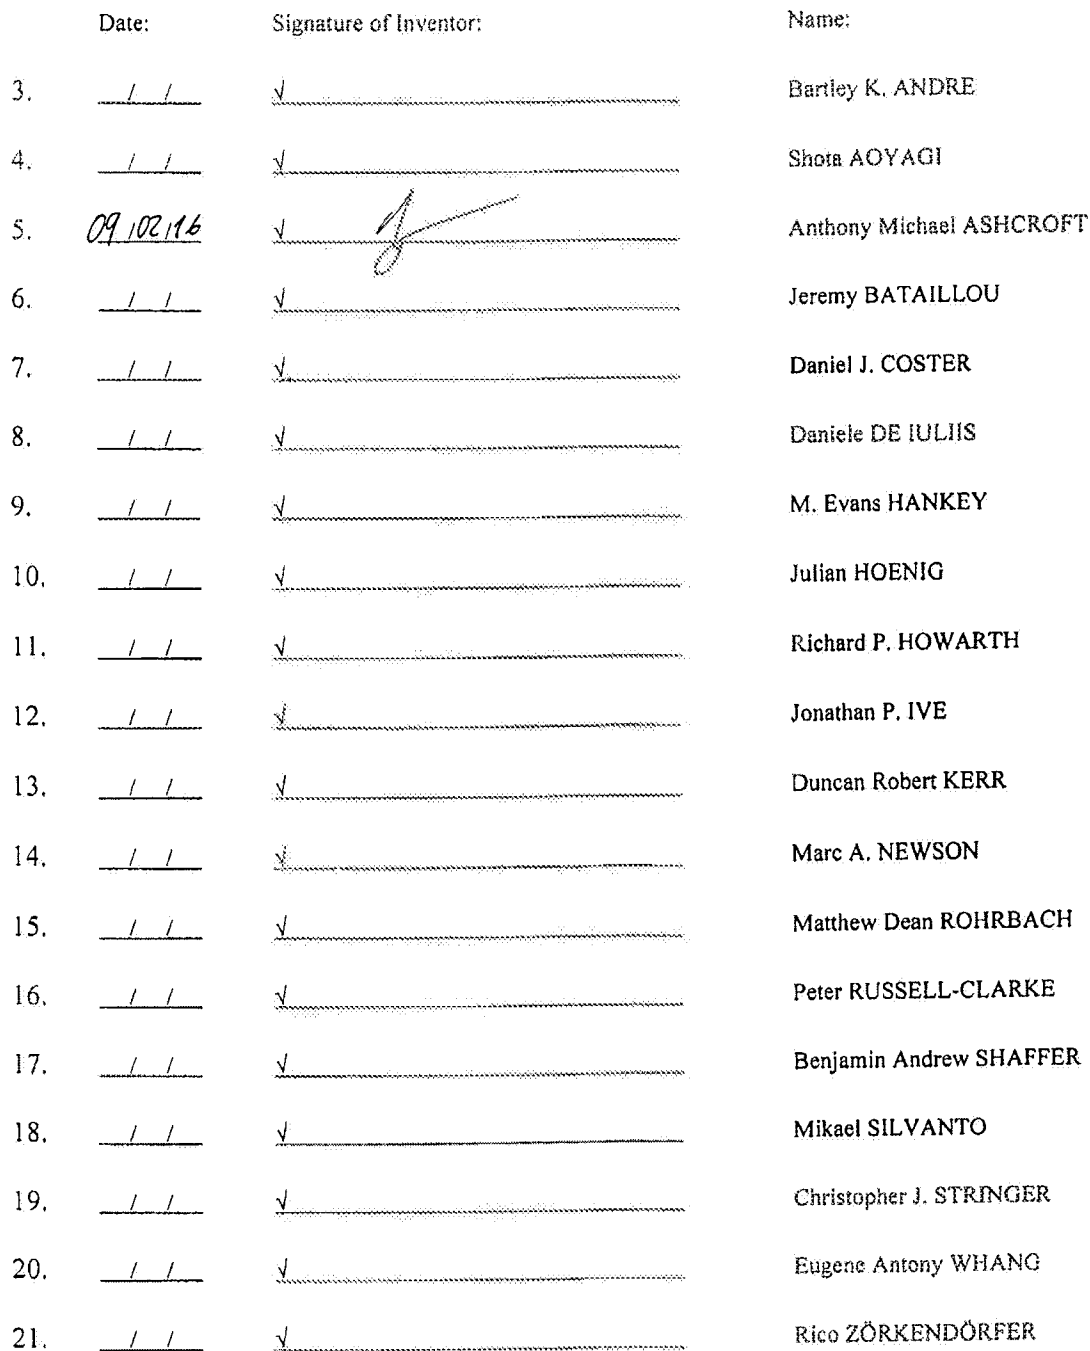 Date: Signature of Inventor: Name:
3. / / √ Bartley K. ANDRE
4. / / √ Shota AOYAGI
5. 09/02/16 √ Anthony Michael ASHCROFT
6. / / √ Jeremy BATAILLOU
7. / / √ Daniel J. COSTER
8. / / √ Daniele DE IULIIS
9. / / √ M. Evans HANKEY
10. / / √ Julian HOENIG
11. / / √ Richard P. HOWARTH
12. / / √ Jonathan P. IVE
13. / / √ Duncan Robert KERR
14. / / √ Marc A. NEWSON
15. / / √ Matthew Dean ROHRBACH
16. / / √ Peter RUSSELL-CLARKE
17. / / √ Benjamin Andrew SHAFFER
18. / / √ Mikael SILVANTO
19. / / √ Christopher J. STRINGER
20. / / √ Eugene Antony WHANG
21. / / √ Rico ZÖRKENDÖRFER